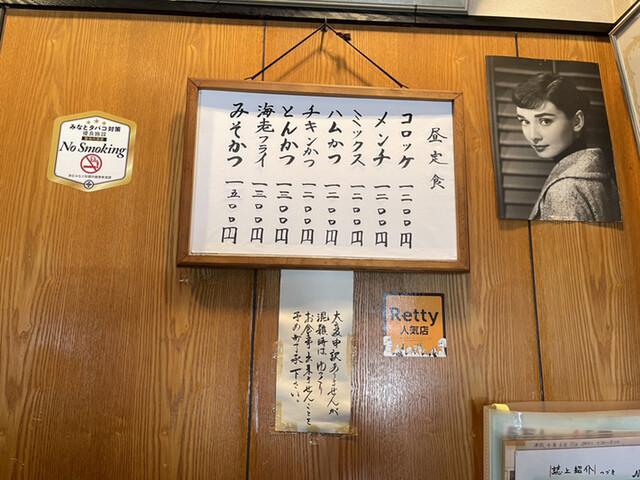 昼定食
コロッケ 一二〇〇円
メンチ 一二〇〇円
ミックス 一二〇〇円
ハムかつ 一二〇〇円
チキンかつ 一二〇〇円
とんかつ 一三〇〇円
海老フライ 一三〇〇円
みそかつ 一五〇〇円
みなとタバコ対策
優良施設
No Smoking
大変申訳ありませんが
混雑時はゆっくり
お食事出来ませんことを
予め御了承下さい。
Retty
人気店
誌上紹介